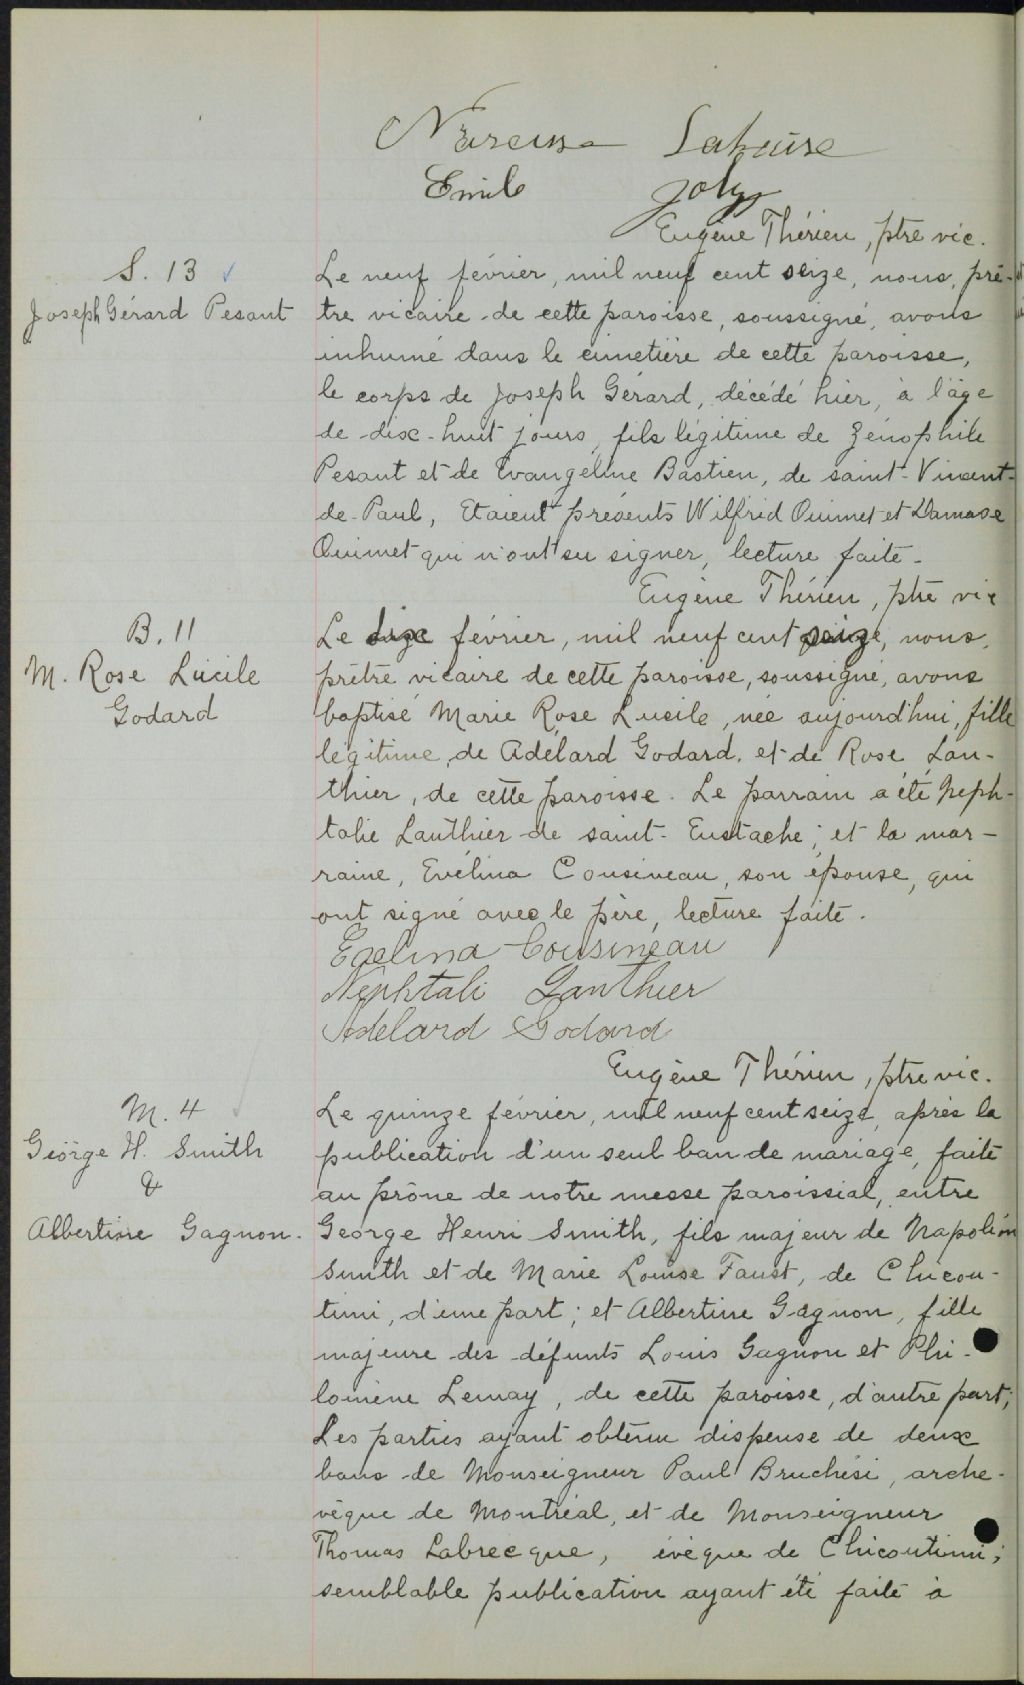 Narcisse Labrise
Emile Joly
Eugène Thérien, ptre vic.
S. 13
Joseph Gérard Pesant
Le neuf février, mil neuf cent seize, nous, prê-
tre vicaire de cette paroisse, soussigné, avons
inhumé dans le cimetière de cette paroisse,
le corps de Joseph Gérard, décédé hier, à l'âge
de dix-huit jours, fils légitime de Zénophile
Pesant et de Evangéline Bastien, de saint-Vincent-
de-Paul, Etaient présents Wilfrid Ouimet et Damase
Ouimet qui n'ont su signer, lecture faite.
Eugène Thérien, ptre vic
B. 11
M. Rose Lucile
Godard
Le dix février, mil neuf cent seize, nous,
prêtre vicaire de cette paroisse, soussigné, avons
baptisé Marie Rose Lucile, née aujourd'hui, fille
légitime, de Adélard Godard, et de Rose Lau-
thier, de cette paroisse. Le parrain a été Neph-
talie Lauthier de saint-Eustache; et la mar-
raine, Evélina Cousineau, son épouse, qui
ont signé avec le père, lecture faite.
Evelina Cousineau
Nephtali Lauthier
Adélard Godard
Eugène Thérien, ptre vic.
M. 4
George H. Smith
&
Albertine Gagnon.
Le quinze février, mil neuf cent seize, après la
publication d'un seul ban de mariage, faite
au prône de notre messe paroissial, entre
George Henri Smith, fils majeur de Napoléon
Smith et de Marie Louise Faust, de Chicou-
timi, d'une part; et Albertine Gagnon, fille
majeure des défunts Louis Gagnon et Phi-
lomène Lemay, de cette paroisse, d'autre part;
Les parties ayant obtenu dispense de deux
bans de Monseigneur Paul Bruchési, arche-
vêque de Montréal, et de Monseigneur
Thomas Labrecque, évêque de Chicoutimi;
semblable publication ayant été faite à